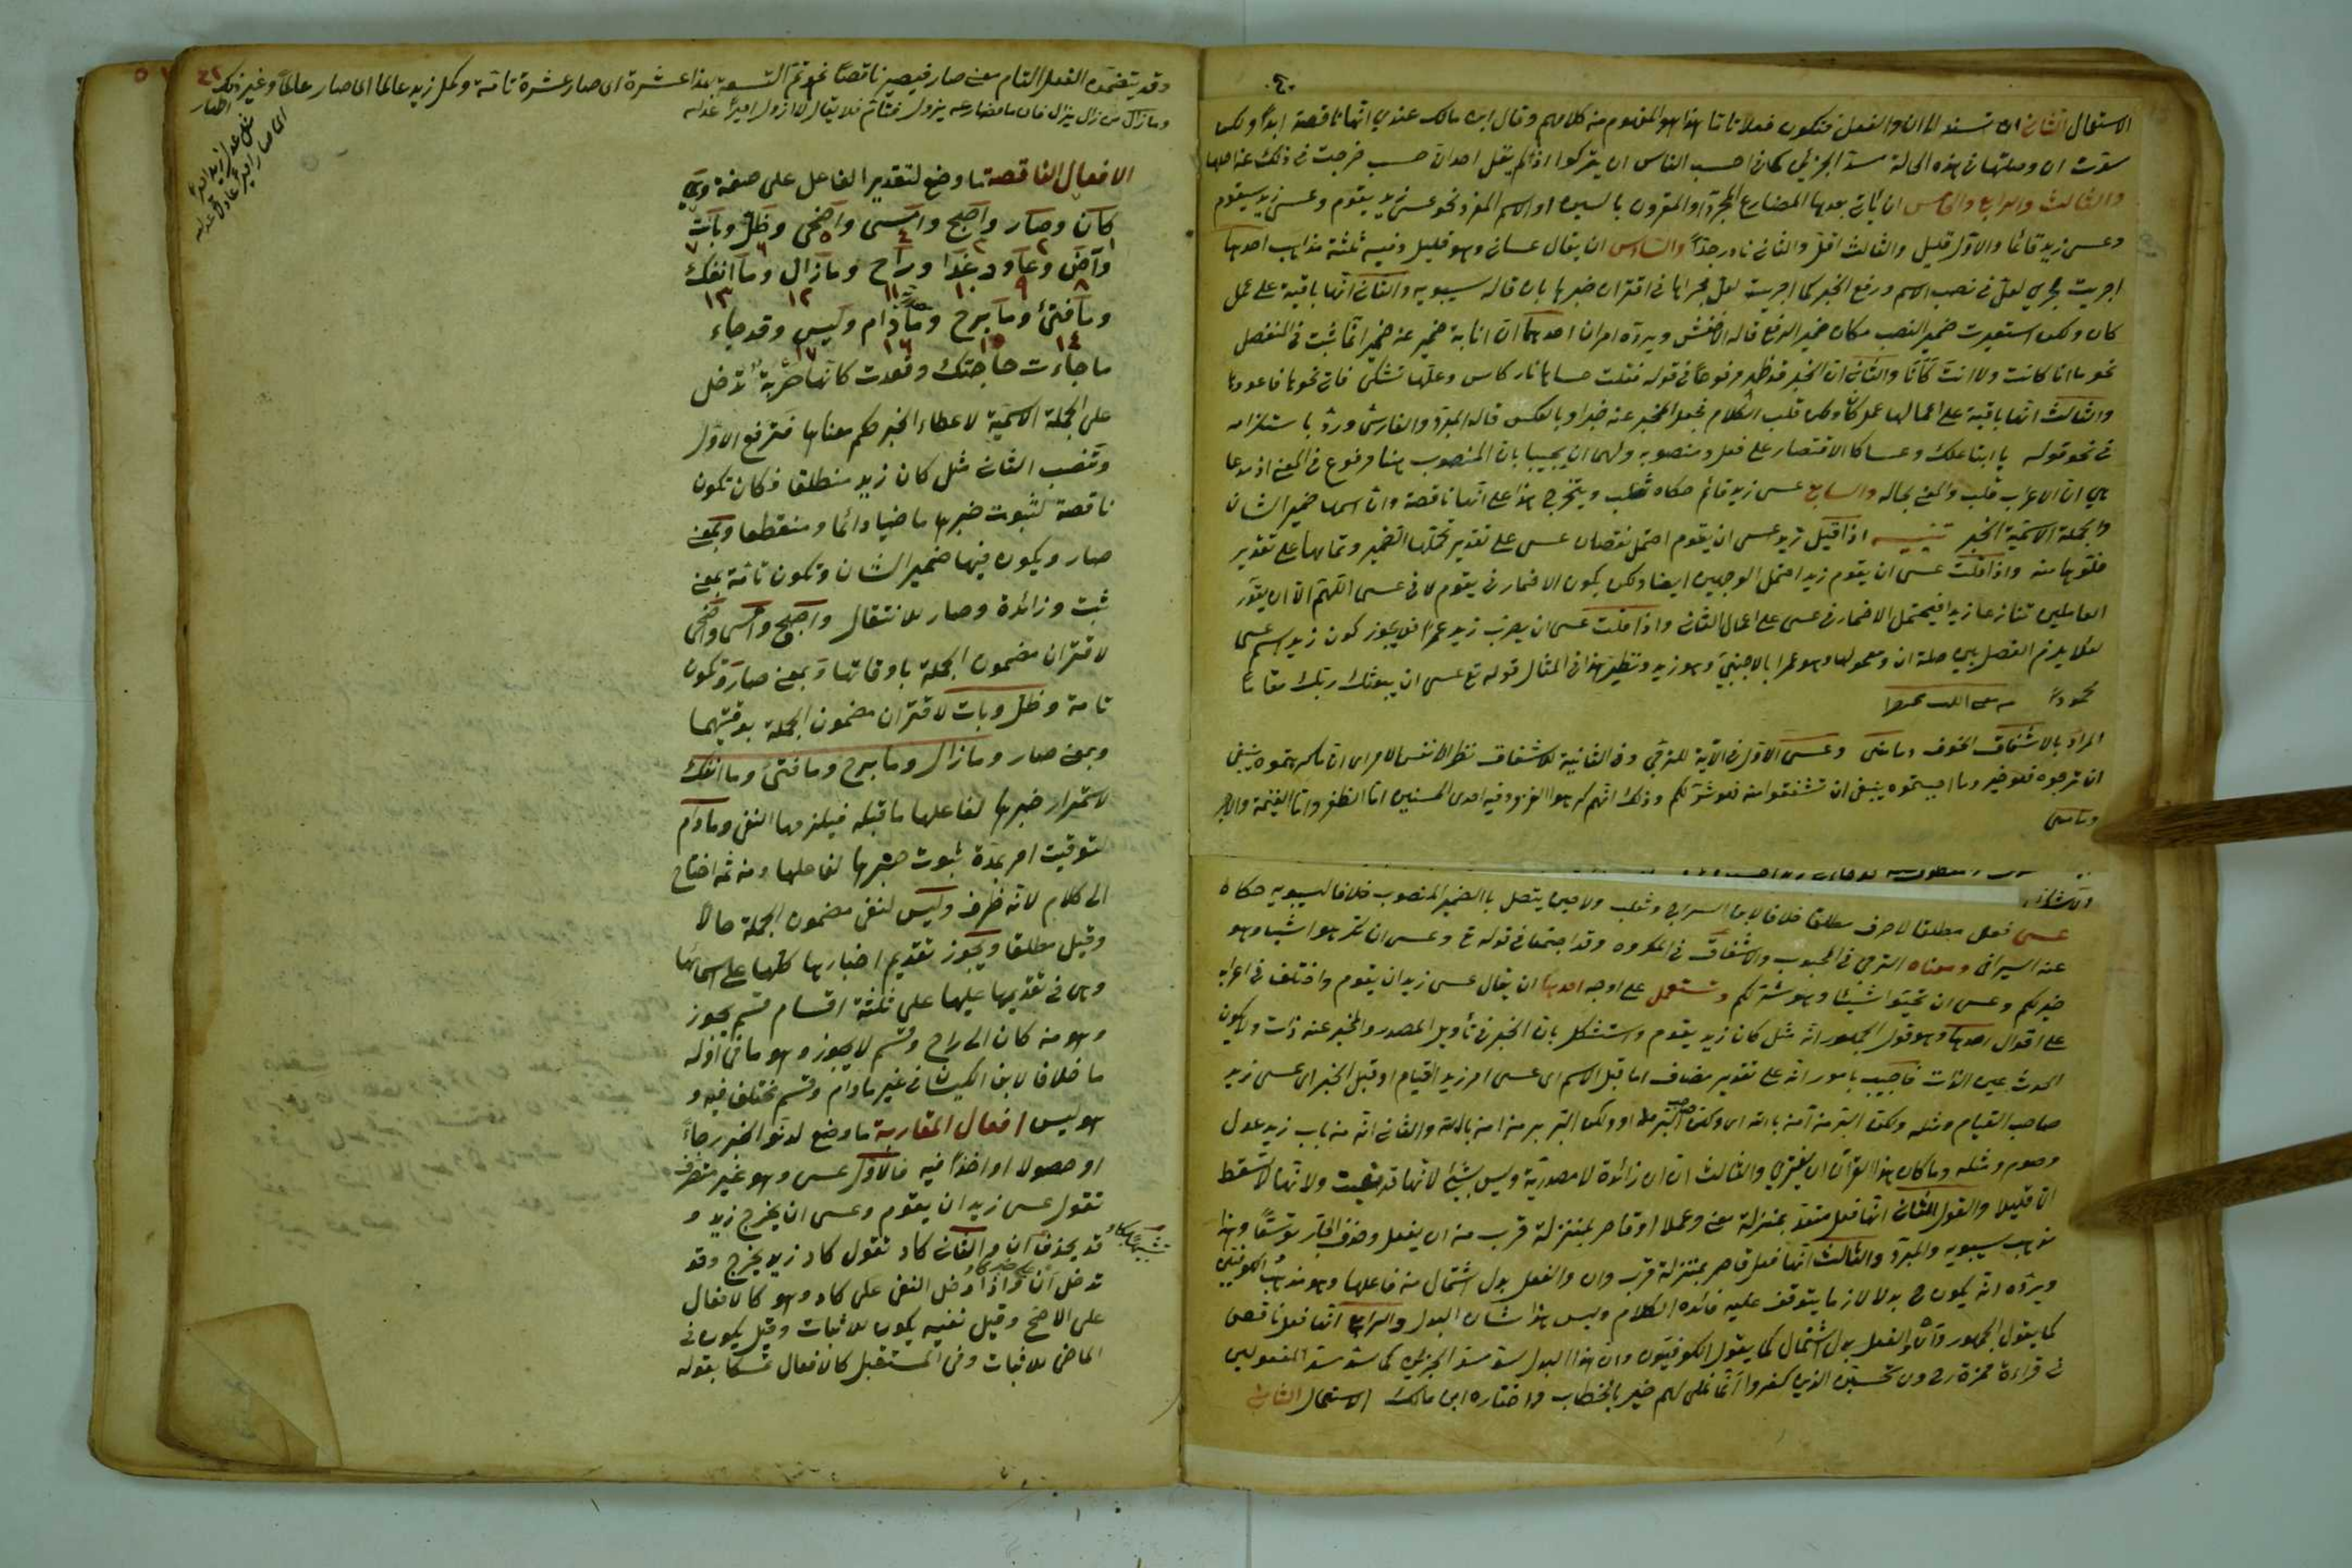 الاستعمال الثاني ان تسند الى ان والفعل فتكون فعلا تاما هذا هو المفهوم من كلامهم وقال ابن مالك عندي انها ناقصة ابدا ولكن
سدّت ان وصلتها في هذه الحالة مسدّ الجزئين كما في احسب الناس ان يتركوا اذ لم يقل احد ان حسب خرجت في ذلك عن اصلها
والثالث والرابع والخامس ان يأتي بعدها المضارع المجرد او المقرون بالسين او الاسم المفرد نحو عسى زيد يقوم وعسى زيد سيقوم
وعسى زيد قائما والاول قليل والثالث اقل والثاني نادر جدّا والسادس ان يقال عساني وهو قليل وفيه ثلثة مذاهب احدها
اجريت مجرى لعل في نصب الاسم ورفع الخبر كما اجريت لعل مجراها في اقتران خبرها بان قاله سيبويه والثاني انها باقية على عمل
كان ولكن استعير ضمير النصب مكان ضمير الرفع قاله الاخفش ويردّه امران احدهما ان انابة ضمير عن ضمير انما ثبت في المنفصل
نحو ما انا كانت ولا انت كأنا والثاني ان الخبر قد ظهر مرفوعا في قوله فقلت عساها نار كاس وعلها تشكى فآتي نحوها فاعودها
والثالث انها باقية على اعمالها عمل كان ولكن قلب الكلام فجعل المخبر عنه خبرا وبالعكس قاله المبرد والفارسي وردّ باستلزامه
في نحو قوله يا ابتا علك او عساكا الاقتصار على فعل ومنصوبه ولهما ان يجيبا بان المنصوب هنا مرفوع في المعنى اذ مدعا
هم ان الاعراب قلب والمعنى بحاله والسابع عسى زيد قائم حكاه ثعلب ويتخرج هذا على انها ناقصة وان اسمها ضمير الشان
والجملة الاسمية الخبر تنبيه اذا قيل زيد عسى ان يقوم احتمل نقصان عسى على تقدير تحملها الضمير وتمامها على تقدير
خلوها منه واذا قلت عسى ان يقوم زيد احتمل الوجهين ايضا ولكن يكون الاضمار في يقوم لا في عسى اللهم الا ان يقدر
العاملين تنازعا زيدا فيحتمل الاضمار في عسى على اعمال الثاني واذا قلت عسى ان يضرب زيد عمرا فلا يجوز كون زيد اسم عسى
لئلا يلزم الفصل بين صلة ان ومعمولها وهو عمرا بالاجنبي وهو زيد ونظير هذا في المثال قوله تع عسى ان يبعثك ربك مقاما
محمودا
المراد بالاشفاق الخوف وعسى الاول في الآية للترجي وفي الثانية للاشفاق نظر الى نفس الامر اى ان ما كرهتموه ينبغي
ان ترجوه فهو خير وما احببتموه ينبغي ان تشفقوا منه فهو شر لكم وذلك انهم كرهوا الغزو وفيه احدى الحسنيين اما الظفر واما الغنيمة والاجر
عسى فعل مطلقا لا حرف مطلقا خلافا لابن السراج وثعلب ولا حين يتصل بالضمير المنصوب خلافا لسيبويه حكاه
عنه السيرافى ومعناه الترجي في المحبوب والاشفاق في المكروه وقد اجتمعا في قوله تع وعسى ان تكرهوا شيئا وهو
خير لكم وعسى ان تحبوا شيئا وهو شر لكم وتستعمل على اوجه احدها ان يقال عسى زيد ان يقوم واختلف في اعرابه
على اقوال احدها وهو قول الجمهور انه مثل كان زيد يقوم واستشكل بان الخبر في تأويل المصدر والمخبر عنه ذات ولا يكون
الحدث عين الذات فاجيب بامور انه على تقدير مضاف اما قبل الاسم اى عسى امر زيد القيام او قبل الخبر اى عسى زيد
صاحب القيام ومثله ولكن البر من آمن بالله اى ولكن صاحب البر من او ولكن البر بر من آمن بالله والثاني انه من باب زيد عدل
وصوم ومثله وما كان هذا القرآن ان يفترى والثالث ان ان زائدة لا مصدرية وليس بشيئ لانها قد نصبت ولانها لا تسقط
الا قليلا والقول الثاني انها فعل متعد بمنزلة قارب معنى وعملا او قاصر بمنزلة قرب من ان يفعل وحذف الجار توسعا وهذا
مذهب سيبويه والمبرد والثالث انها فعل قاصر بمنزلة قرب وان والفعل بدل اشتمال من فاعلها وهو مذهب الكوفيين
ويردّه انه يكون ح بدلا لازما يتوقف عليه فائدة الكلام وليس هذا شان البدل والرابع انها فعل ناقص
كما يقول الجمهور وان والفعل بدل اشتمال كما يقول الكوفيون وان هذا البدل سدّ مسدّ الجزئين كما سدّ مسدّ المفعولين
في قراءة حمزة رح ولا تحسبن الذين كفروا انما نملي لهم خير بالخطاب واختاره ابن مالك الاستعمال الثاني
وقد يتضمن الفعل التام معنى صار فيصير ناقصا نحو تتم التسعة بهذا عشرة اى صار عشرة تامة وكمل زيد عالما اى صار عالما وغير ذلك
وما زال من زال يزال فان ما مضارعه يزول فتام فلا يقال لا ازول اميرا
الافعال الناقصة ما وضع لتقدير الفاعل على صفة وهي
كان وصار واصبح وامسى واضحى وظل وبات
وآض وعاد وغدا وراح وما زال وما انفك
وما فتئ وما برح وما دام وليس وقد جاء
ما جاءت حاجتك وقعدت كانها حربة تدخل
على الجملة الاسمية لاعطاء الخبر حكم معناها فترفع الاول
وتنصب الثاني مثل كان زيد منطلقا فكان تكون
ناقصة لثبوت خبرها ماضيا دائما ومنقطعا وبمعنى
صار ويكون فيها ضمير الشان وتكون تامة بمعنى
ثبت وزائدة وصار للانتقال واصبح وامسى واضحى
لاقتران مضمون الجملة باوقاتها وبمعنى صار وتكون
تامة وظل وبات لاقتران مضمون الجملة بوقتيهما
وبمعنى صار وما زال وما برح وما فتئ وما انفك
لاستمرار خبرها لفاعلها ما قبله فيلزمها النفى وما دام
لتوقيت امر بمدة ثبوت خبرها لفاعلها ومن ثمه احتاج
الى كلام لانه ظرف وليس لنفى مضمون الجملة حالا
وقيل مطلقا ويجوز تقديم اخبارها كلها على اسمائها
وهى في تقديمها عليها على ثلثة اقسام قسم يجوز
وهو من كان الى راح وقسم لا يجوز وهو ما في اوله
ما خلافا لابن الكيسان في غير ما دام وقسم مختلف فيه و
هو ليس افعال المقاربة ما وضع لدنو الخبر رجاء
او حصولا او اخذا فيه فالاول عسى وهو غير متصرف
تقول عسى زيد ان يقوم وعسى ان يخرج زيد و
قد يحذف ان والثاني كاد تقول كاد زيد يخرج وقد
تدخل ان واذا دخل النفى على كاد وهو كالافعال
على الاصح وقيل نفيه يكون للاثبات وقيل يكون في
الماضى للاثبات وفى المستقبل كالافعال تمسكا بقوله